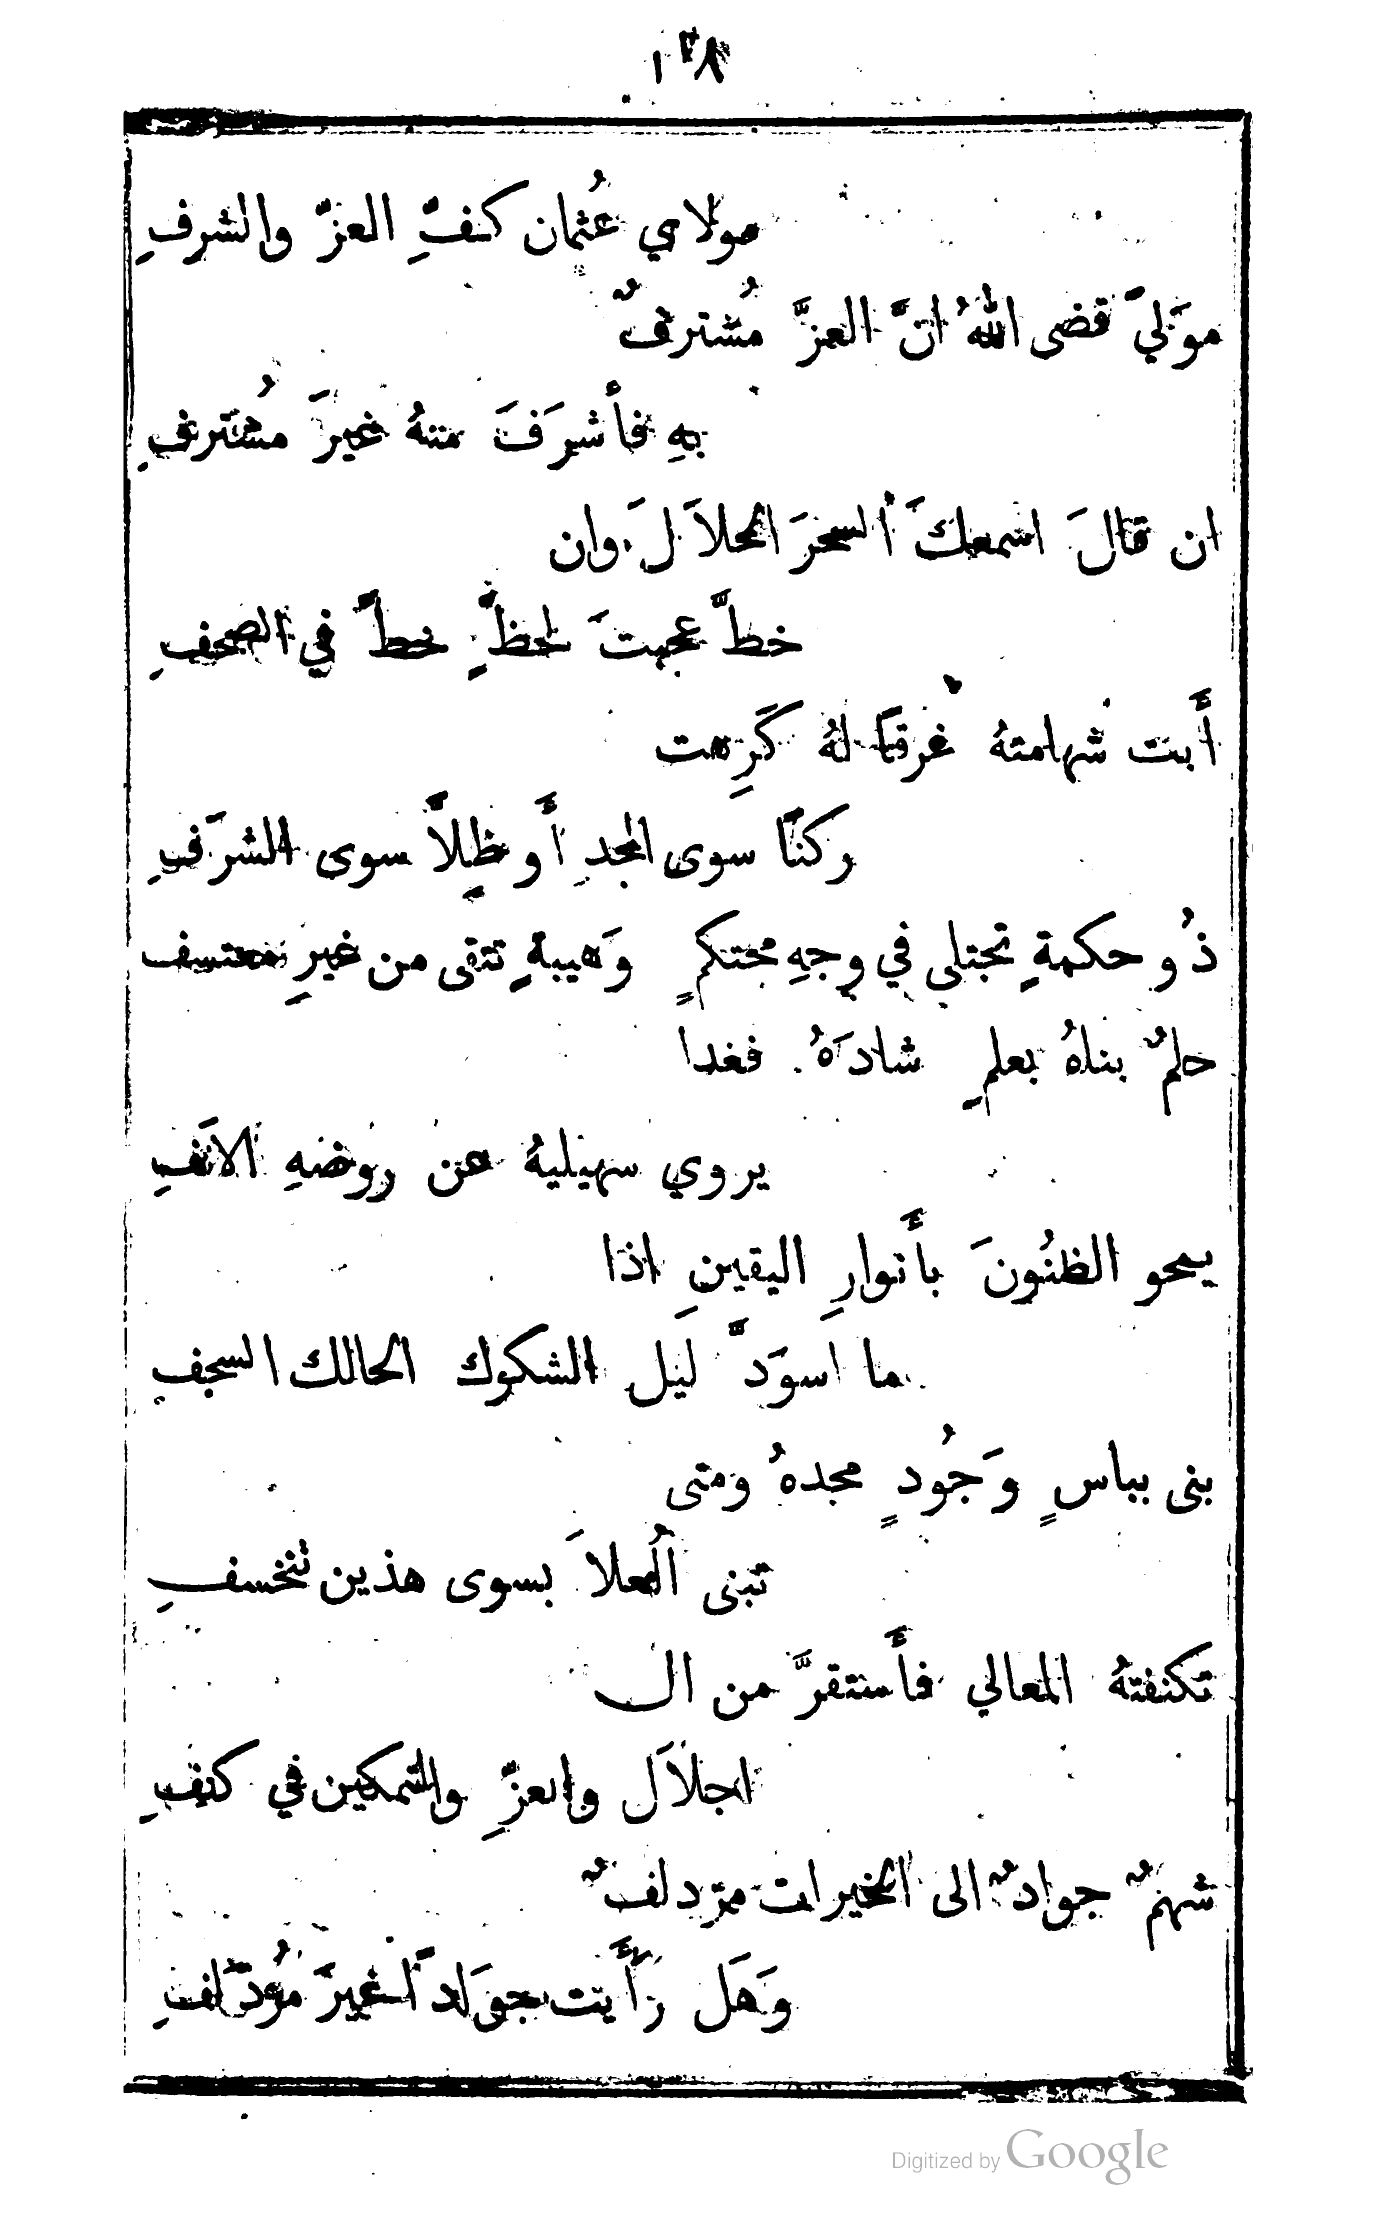 ١٣٨
مولامي عُثمان كنفِّ العزّ والشرفِ
موَليً قضى اللهُ انَّ العزَّ مُشترفٌ
بهِ فأشرَفَ منهُ غيرَ مُشَترفِ
ان قالَ اسمعكَ السحرَ الحلاَلَ وان
خطَّ عجبتَ لحظٍّ خطَّ في الصحفِ
أَبت شهامتهُ غرفًا لهُ كَرِهت
ركنًا سوى المجدِ أَو ظلاًّ سوى الشرَفِ
ذُو حكمةٍ تجتلى في وجهِ محتكمٍ وَهيبةٍ تتقى من غيرِ معتسف
حلمٌ بناهُ بعلمٍ شادَهُ. فغدا
يروي سهيليهُ عن روضهِ الانَفِ
يمحو الظنُونَ بأَنوارِ اليقينِ اذا
ما اسوَدَّ ليل الشكوك الحالك السجفِ
بنى بباسٍ وَجُودٍ مجدهُ ومتى
تبنى الُعلاَ بسوى هذين تنخسفِ
تكنفتهُ المعالي فأَستقرَّ من ال
اجلاَل والعزِّ والتمكين في كنفِ
شهمٌ جوادٌ الى الخيرات مزدلفٌ
وَهَل رَأَيت جوَاداً غيرَ مُزدَلفِ
Digitized by Google